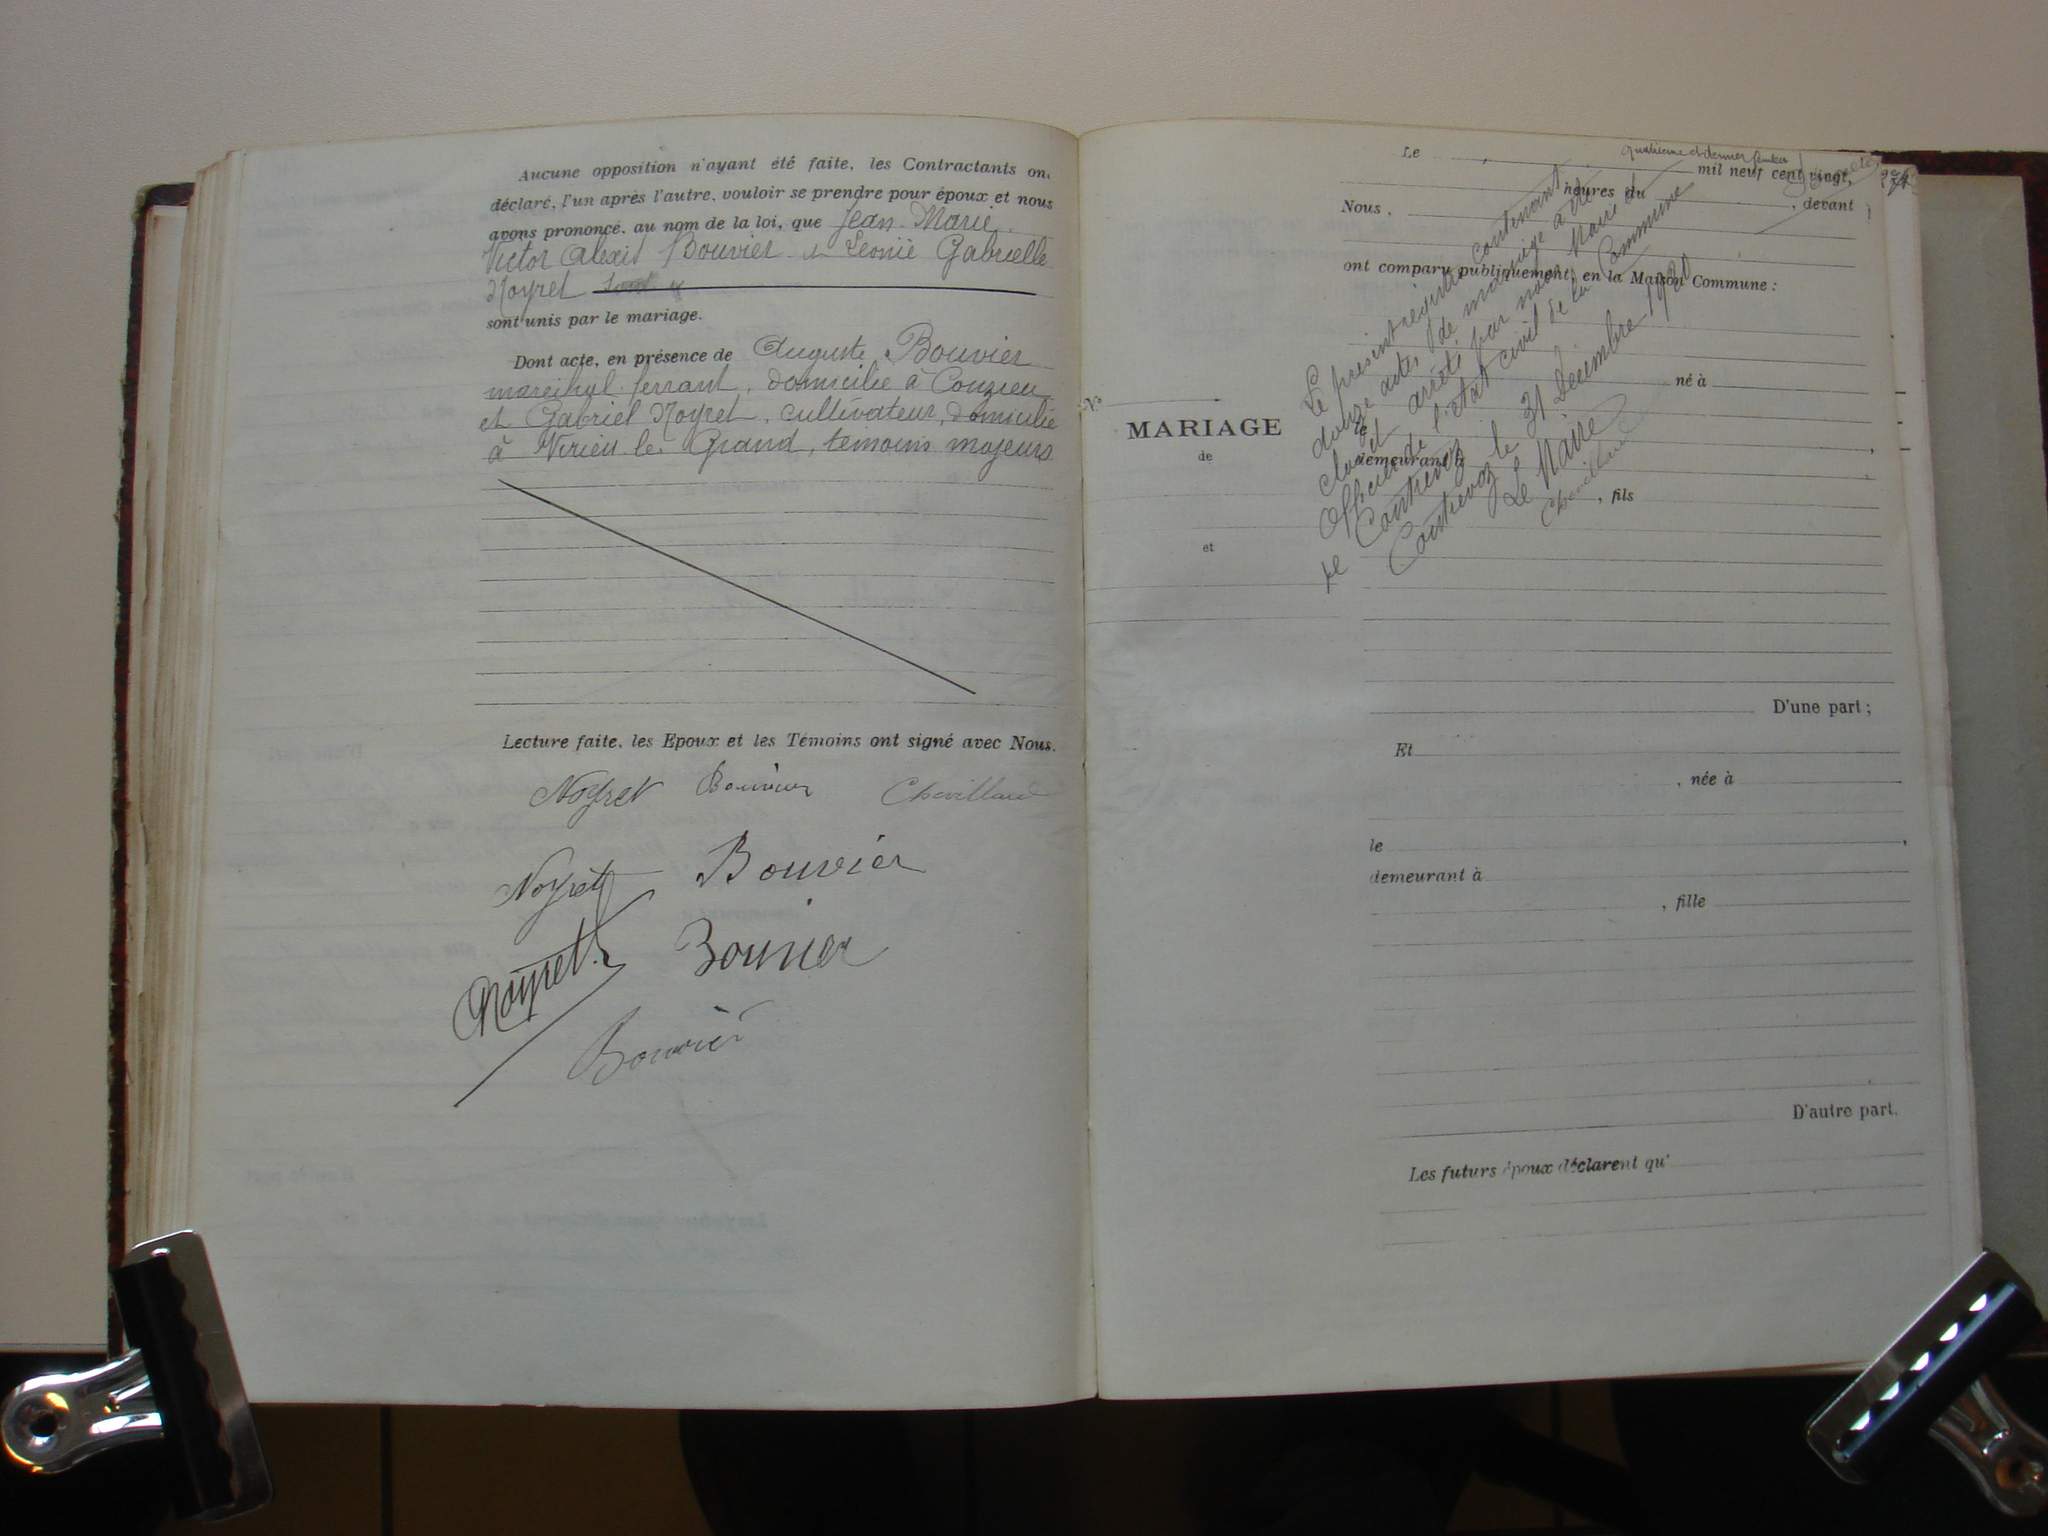 Aucune opposition n'ayant été faite, les Contractants on
déclaré, l'un après l'autre, vouloir se prendre pour époux et nous
avons prononcé, au nom de la loi, que Jean-Marie
Victor Alexis Bouvier et Léonie Gabrielle
Noyret
sont unis par le mariage.
Dont acte, en présence de Auguste Bouvier
maréchal ferrant, domicilié à Conzieu
et Gabriel Noyret, cultivateur, domicilié
à Virieu-le-Grand, témoins majeurs
Lecture faite, les Epoux et les Témoins ont signé avec Nous.
Noyret Bouvier Chevillard
Noyret Bouvier
Noyret Bouvier
Bouvier
quatrième et dernier feuillet
Le mil neuf cent vingt,
heures du , devant
Nous,
ont comparu publiquement, en la Maison Commune :
né à
le
demeurant à
, fils
D'une part ;
Et
, née à
le
demeurant à
, fille
D'autre part.
Les futurs époux déclarent qu'
N°
MARIAGE
de
et
Le présent registre contenant
douze actes de mariage a été
clos et arrêté par nous Maire et
Officier de l'état civil de la Commune
de Contrevoz
Contrevoz le 31 Décembre 1920
Le Maire
Chevillard